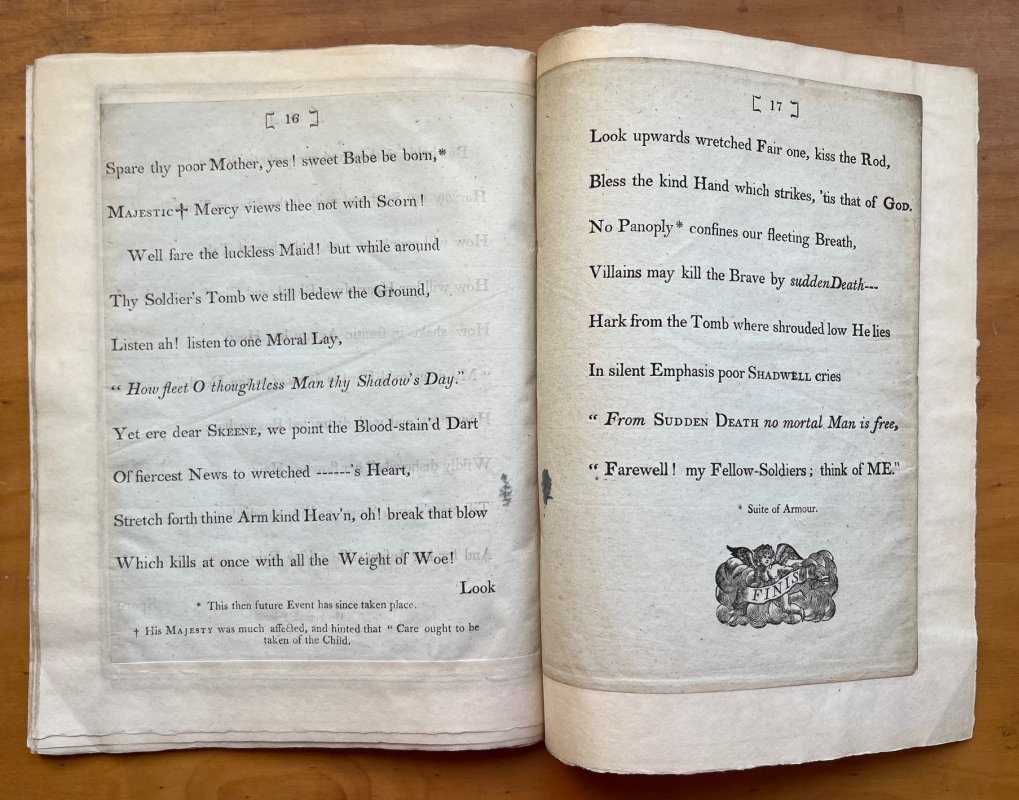 [ 16 ]
Spare thy poor Mother, yes! sweet Babe be born,*
MAJESTIC† Mercy views thee not with Scorn!
Well fare the luckless Maid! but while around
Thy Soldier's Tomb we still bedew the Ground,
Listen ah! listen to one Moral Lay,
“ How fleet O thoughtless Man thy Shadow's Day.”
Yet ere dear SKEENE, we point the Blood-stain'd Dart
Of fiercest News to wretched ------'s Heart,
Stretch forth thine Arm kind Heav'n, oh! break that blow
Which kills at once with all the Weight of Woe!
Look
* This then future Event has since taken place.
† His MAJESTY was much affected, and hinted that “ Care ought to be
taken of the Child.
[ 17 ]
Look upwards wretched Fair one, kiss the Rod,
Bless the kind Hand which strikes, 'tis that of GOD.
No Panoply* confines our fleeting Breath,
Villains may kill the Brave by sudden Death---
Hark from the Tomb where shrouded low He lies
In silent Emphasis poor SHADWELL cries
“ From SUDDEN DEATH no mortal Man is free,
“ Farewell! my Fellow-Soldiers; think of ME.”
* Suite of Armour.
FINIS